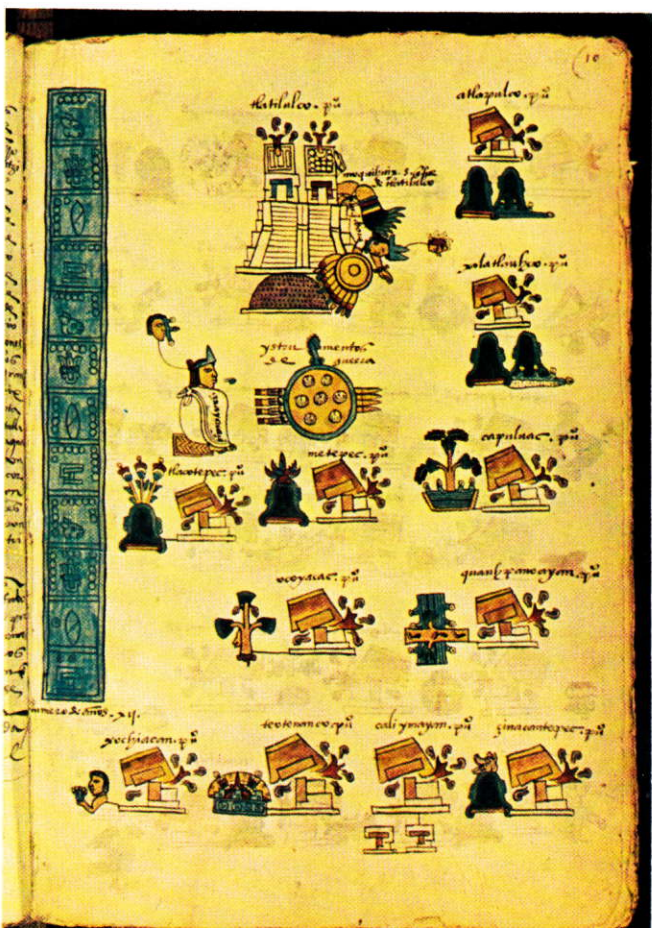 10
tlatilulco. pũ
atlapulco. pũ
moquihuix. Señor
de tlatilulco
xalatlauhco. pũ
ystru mentos
de guerra
axayacaçi
capuluac. pũ
tlacotepec. pũ
metepec. pũ
ocoyacac. pũ
quauhpanoayan. pũ
numero de años. xij.
xochiacan. pũ
teotenanco. pũ
caliymayan. pũ
çinacantepec. pũ